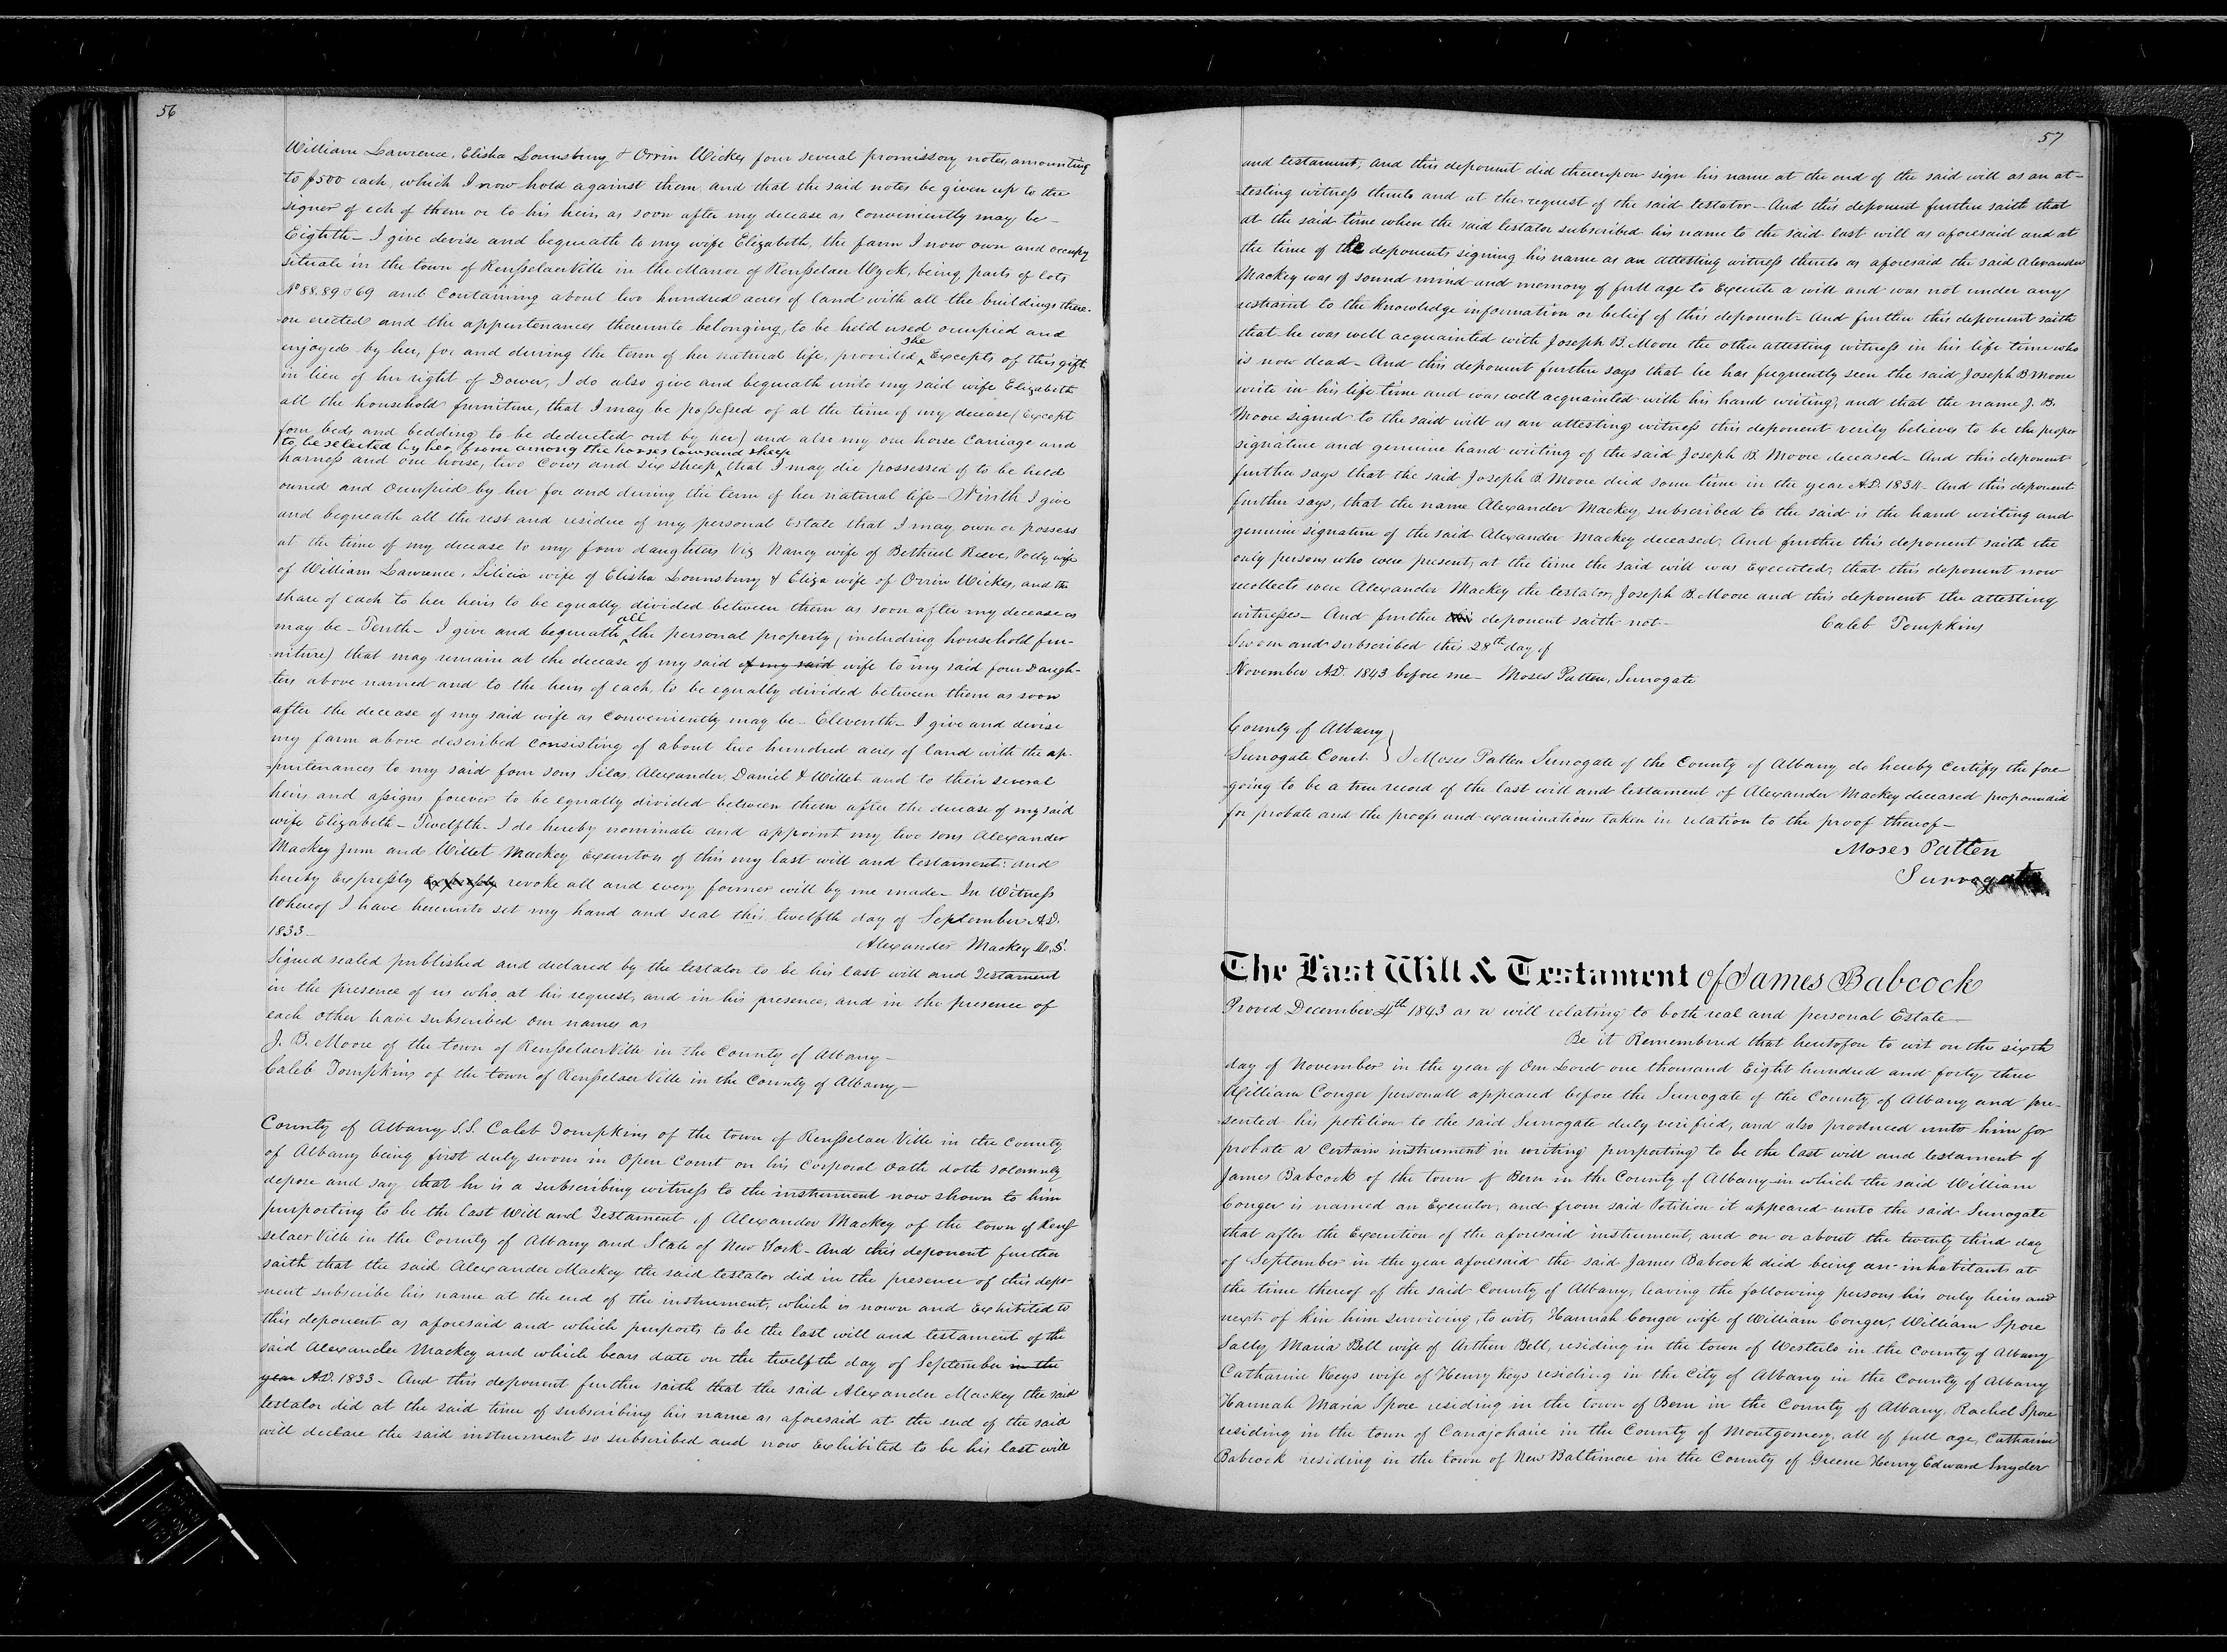 56
William Lawrence, Elisha Lounsbury & Orrin Wickes four several promissory notes, amounting
to $500 each, which I now hold against them, and that the said notes be given up to the
signer of ech of them or to his heirs as soon after my decease as Conveniently may be -
Eighth - I give devise and bequeath to my wife Elizabeth, the farm I now own and occupy
situate in the town of RensselaerVille in the Manor of Rensselaer Wyck, being parts of lots
No 88. 89 & 69 and Containing about two hundred acres of land with all the buildings there-
-on erected and the appurtenances thereunto belonging, to be held used occupied and
she
enjoyed by her, for and during the term of her natural life, provided ^ Excepts of this gift
in lieu of her right of Dower, I do also give and bequeath unto my said wife Elizabeth
all the household furniture, that I may be possessed of at the time of my decease (Except
four beds and bedding to be deducted out by her) and also my one horse Carriage and
to be selected by her from among the horses cows and sheep
harness and one horse, two Cows and six sheep ^ that I may die possessed of to be held
owned and occupied by her for and during the term of her natural life - Ninth I give
and bequeath all the rest and residue of my personal Estate that I may own or possess
at the time of my decease to my four daughters Viz Nancy wife of Bethuel Reeve, Polly wife
of William Lawrence, Silicia wife of Elisha Lounsbury & Eliza wife of Orrin Wickes, and the
share of each to her heirs to be equally divided between them as soon after my decease as
all
may be - Tenth - I give and bequeath ^ the personal property (including household fur-
-niture) that may remain at the decease of my said of my said wife to my said four Daugh-
-ters above named and to the heirs of each, to be equally divided between them as soon
after the decease of my said wife as Conveniently may be - Eleventh - I give and devise
my farm above described Consisting of about two hundred acres of land with the ap-
-purtenances to my said four sons Silas, Alexander, Daniel & Willet and to their several
heirs and assigns forever to be equally divided between them after the decease of my said
wife Elizabeth - Twelfth - I do hereby nominate and appoint my two sons Alexander
Mackey Junr and Willet Mackey Executors of this my last will and testament: and
hereby Expressly Expressly revoke all and every former will by me made - In Witness
Whereof I have hereunto set my hand and seal this twelfth day of September A.D.
1833 -
Alexander Mackey L.S.
Signed sealed published and declared by the testator to be his last will and Testament
in the presence of us who, at his request, and in his presence, and in the presence of
each other have subscribed our names as
J. B. Moore of the town of RensselaerVille in the County of Albany -
Caleb Tompkins of the town of Rensselaer Ville in the County of Albany -
County of Albany S.S. Caleb Tompkins of the town of Rensselaer Ville in the County
of Albany being first duly sworn in Open Court on his Corporal oath doth solemnly
depose and say that he is a subscribing witness to the instrument now shown to him
purporting to be the last Will and Testament of Alexander Mackey of the town of Rens-
selaer Ville in the County of Albany and State of New York - And this deponent further
saith that the said Alexander Mackey the said testator did in the presence of this depo-
-nent subscribe his name at the end of the instrument, which is nown and Exhibited to
this deponent as aforesaid and which purports to be the last will and testament of the
said Alexander Mackey and which bears date on the twelfth day of September in the
year A.D. 1833 - And this deponent further saith that the said Alexander Mackey the said
testator did at the said time of subscribing his name as aforesaid at the end of the said
will declare the said instrument so subscribed and now Exhibited to be his last will
57
and testament, And this deponent did thereupon sign his name at the end of the said will as an at-
-testing witness thereto and at the request of the said testator - And this deponent further saith that
at the said time when the said testator subscribed his name to the said last will as aforesaid and at
the time of the deponents signing his name as an attesting witness thereto as aforesaid the said Alexander
Mackey was of sound mind and memory of full age to Execute a will and was not under any
restraint to the knowledge information or belief of this deponent - And further this deponent saith
that he was well acquainted with Joseph B. Moore the other attesting witness in his life time who
is now dead - And this deponent further says that he has frequently seen the said Joseph B Moore
write in his life time and was well acquainted with his hand writing, and that the name J. B.
Moore signed to the said will as an attesting witness this deponent verily believes to be the proper
signature and genuine hand writing of the said Joseph B. Moore deceased - And this deponent
further says that the said Joseph B. Moore died some time in the year A.D. 1834 - And this deponent
further says, that the name Alexander Mackey, subscribed to the said is the hand writing and
genuine signature of the said Alexander Mackey deceased. And further this deponent saith the
only persons who were present, at the time the said will was Executed, that this deponent now
recollects were Alexander Mackey the testator, Joseph B. Moore and this deponent the attesting
witnesses - And further this deponent saith not -
Caleb Tompkins
Sworn and subscribed this 28th day of
November A.D. 1843 before me - Moses Patten, Surrogate
County of Albany
Surrogate Court } I Moses Patten Surrogate of the County of Albany do hereby Certify the fore-
-going to be a true record of the last will and testament of Alexander Mackey deceased propounded
for probate and the proofs and examinations taken in relation to the proof thereof -
Moses Patten
Surrogate
The Last Will & Testament of James Babcock
Proved December 4th 1843 as a will relating to both real and personal Estate -
Be it Remembered that heretofore to wit on the sixth
day of November in the year of Our Lord one thousand Eight hundred and forty three
William Conger personall appeared before the Surrogate of the County of Albany and pre-
-sented his petition to the said Surrogate duly verified, and also produced unto him for
probate a Certain instrument in writing purporting to be the last will and testament of
James Babcock of the town of Bern in the County of Albany in which the said William
Conger is named an Executor, and from said Petition it appeared unto the said Surrogate
that after the Execution of the aforesaid instrument, and on or about the twenty third day
of September in the year aforesaid the said James Babcock died being an inhabitants at
the time thereof of the said County of Albany, leaving the following persons his only heirs and
next of kin him surviving, to wit, Hannah Conger wife of William Conger, William Spore
Sally Maria Bell wife of Arthur Bell, residing in the town of Westerlo in the County of Albany
Catharine Keys wife of Henry Keys residing in the City of Albany in the County of Albany
Hannah Maria Spore residing in the town of Bern in the County of Albany, Rachel Spore
residing in the town of Canajoharie in the County of Montgomery, all of full age, Catharine
Babcock residing in the town of New Baltimore in the County of Greene Henry Edward Snyder